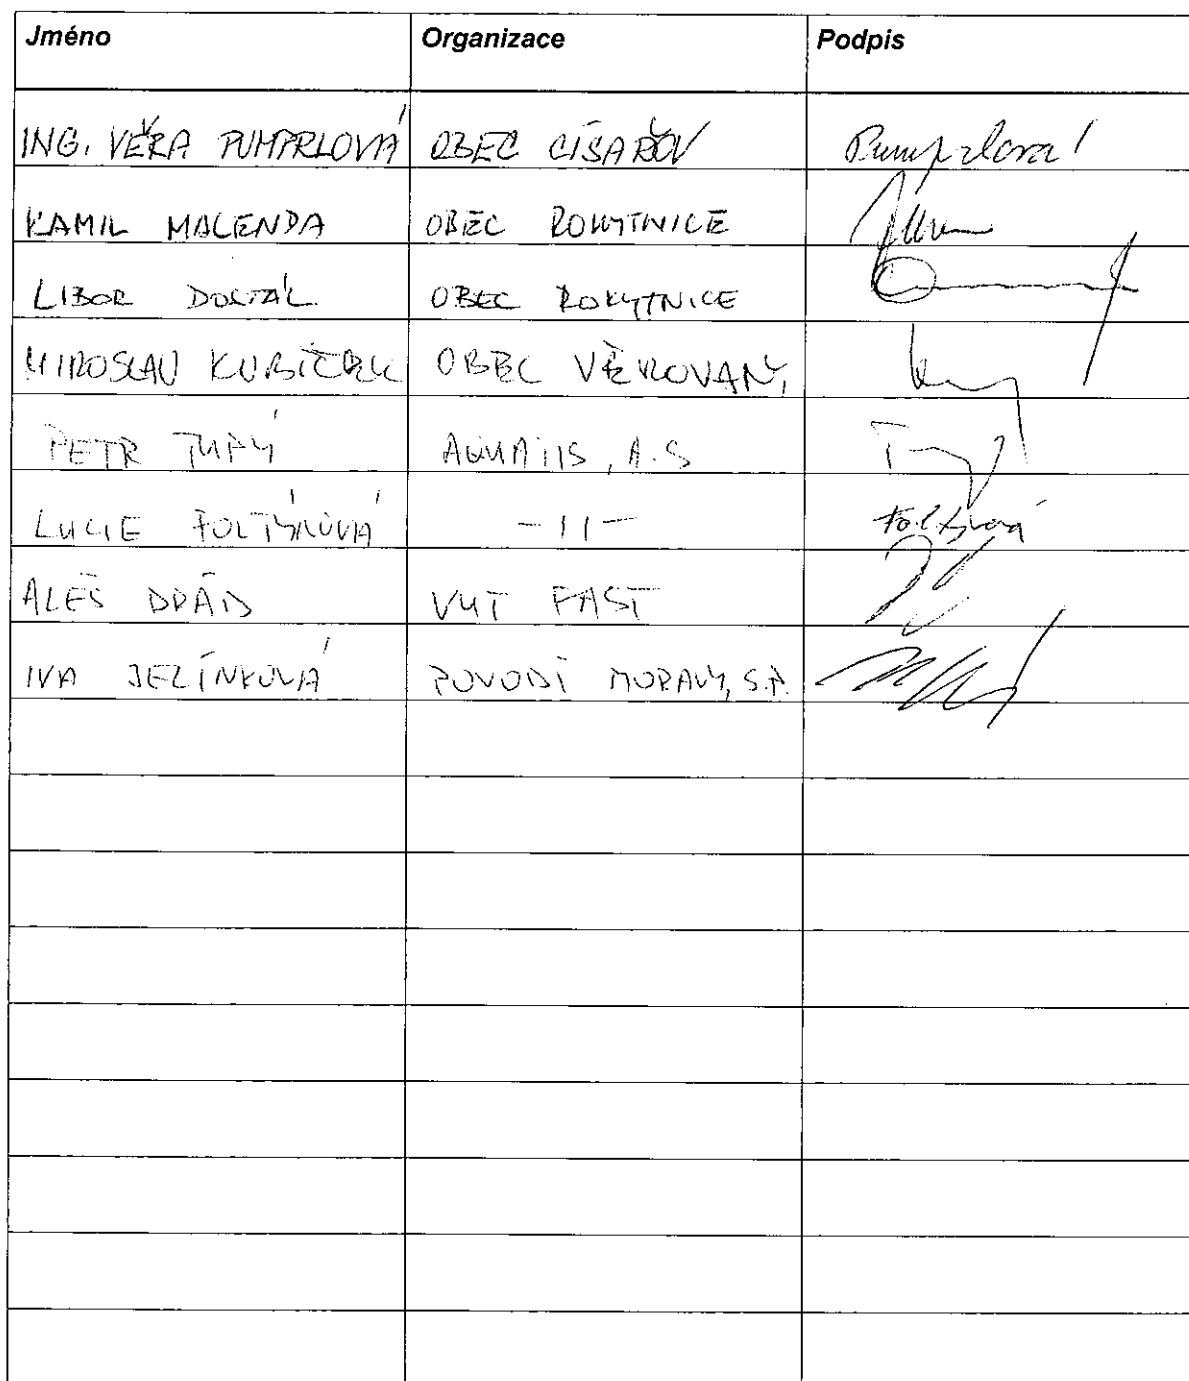 Jméno Organizace Podpis
ING. VĚRA PUMPRLOVÁ OBEC CÍSAŘOV Pumprlová
KAMIL MACENDA OBEC ROKYTNICE
LIBOR DOSTÁL OBEC ROKYTNICE
MIROSLAV KUBÍČEK OBEC VĚROVANY,
PETR TUPÝ AQUATIS, A.S
LUCIE FOLTÝNOVÁ -11- Foltýnová
ALEŠ DRÁB VUT FAST
IVA JELÍNKOVÁ POVODÍ MORAVY, S.P.